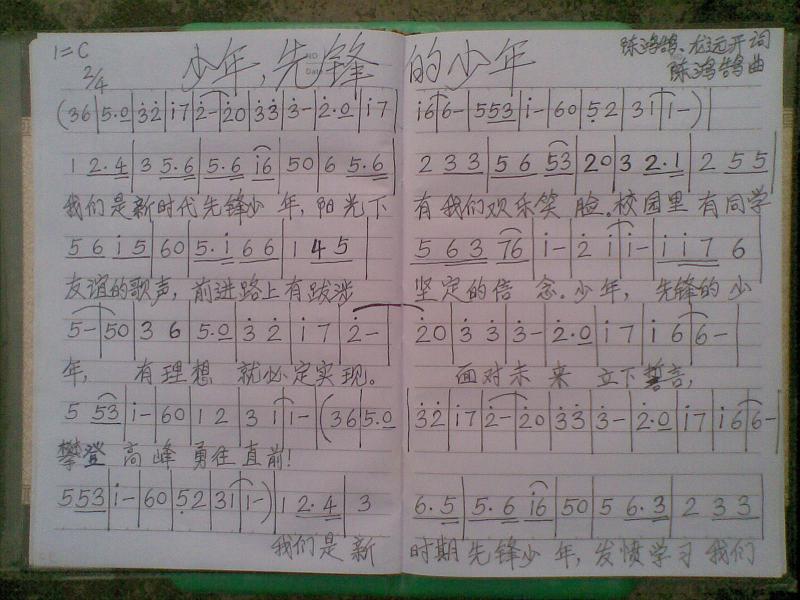 1=C
2/4
少年,先锋的少年
陈鸿鹄、龙远开词
陈鸿鹄曲
(36|5·0|32|i7|2-|20|33|3-|2·0|i7|i6|6-|553|i-|60|52|3i|i-)|
1 2·4|3 5·6|5·6 i6|50|6 5·6|2 33|56 53|20|3 2·1|2 55|
我们是新时代先锋少年,阳光下有我们欢乐笑脸。校园里有同学
56 i5|60|5·i 66|1 45|5 63 76|i-|2 i|i-|i i7 6|
友谊的歌声,前进路上有跋涉坚定的信念。少年,先锋的少
5-|50|3 6|5·0|3 2|i 7|2-|20|3 3|3-|2·0|i7|i 6|6-|
年,有理想就必定实现。面对未来立下誓言,
5 53|i-|60|12|3 i|i-|(36|5·0|32|i7|2-|20|33|3-|2·0|i7|i6|6-|
攀登高峰勇往直前!
553|i-|60|52|3i|i-)|1 2·4|3 6·5|5·6 i6|50|5 6·3|2 33|
我们是新时期先锋少年,发愤学习我们